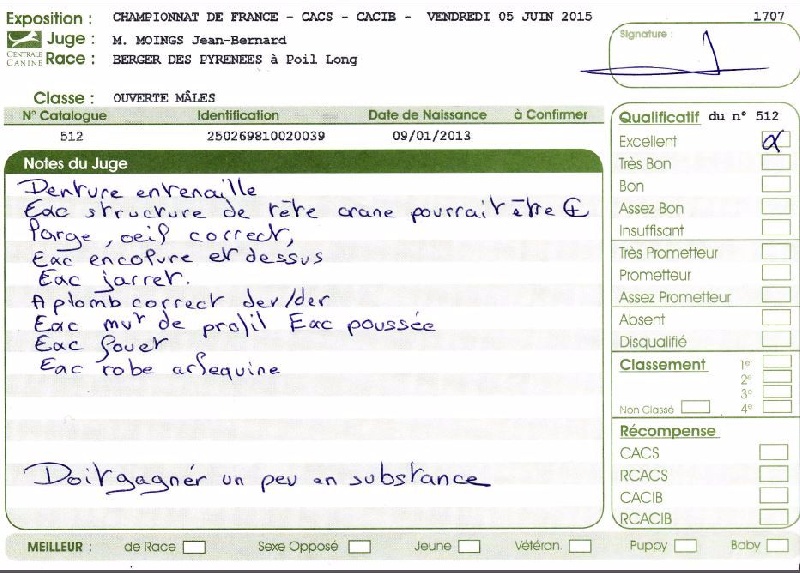 Exposition : CHAMPIONNAT DE FRANCE - CACS - CACIB - VENDREDI 05 JUIN 2015 1707
CENTRALE CANINE
Juge : M. MOINGS Jean-Bernard
Race : BERGER DES PYRENEES à Poil Long
Signature :
Classe : OUVERTE MÂLES
N° Catalogue Identification Date de Naissance à Confirmer
512 250269810020039 09/01/2013
Notes du Juge
Denture entenaille
Exc structure de tête crane pourrait être
large, oeil correct,
Exc encolure et dessus
Exc jarret.
Aplomb correct dev/der
Exc mvt de profil Exc poussée
Exc fouet
Exc robe arlequine
Doit gagner un peu en substance
Qualificatif du n° 512
Excellent
Très Bon
Bon
Assez Bon
Insuffisant
Très Prometteur
Prometteur
Assez Prometteur
Absent
Disqualifié
Classement 1°
2°
3°
Non Classé 4°
Récompense
CACS
RCACS
CACIB
RCACIB
MEILLEUR : de Race Sexe Opposé Jeune Vétéran Puppy Baby